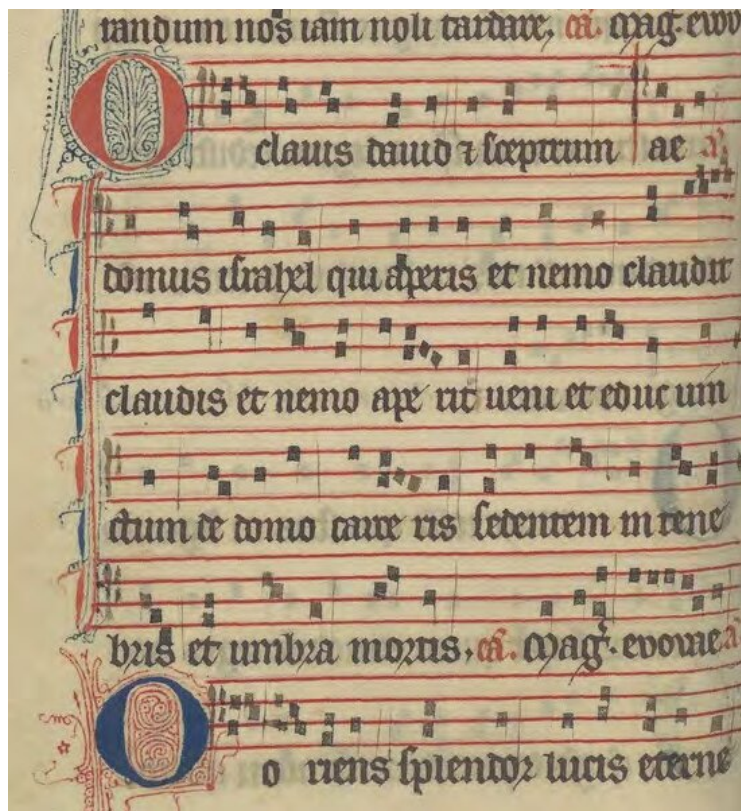 tandum nos iam noli tardare, añ. Mag. evov
O clauis dauid ⁊ sceptrum ae
domus israhel qui aperis et nemo claudit
claudis et nemo ape rit ueni et educ uin
ctum de domo carce ris sedentem in tene
bris et umbra mortis, añ. Mag. evovae
O o riens splendor lucis eterne